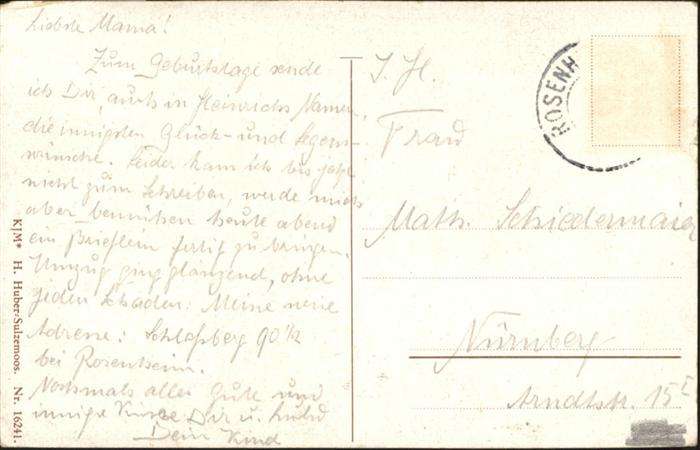 Liebste Mama!
Zum Geburtstage sende
ich Dir, auch in Heinrichs Namen,
die innigsten Glück- und Segens-
wünsche. Leider kam ich bis jetzt
nicht zum Schreiben, werde mich
aber bemühen heute abend
ein Brieflein fertig zu bringen.
Umzug ging glänzend, ohne
jeden Schaden. Meine neue
Adresse: Schloßberg 90½
bei Rosenheim.
Nochmals alles Gute und
innige Küsse Dir u.
Dein Kind
KJM* H. Huber-Sulzemoos. Nr. 16241.
ROSENH
Frau
Math. Schiedermaier
Nürnberg
Arndtstr. 15 I